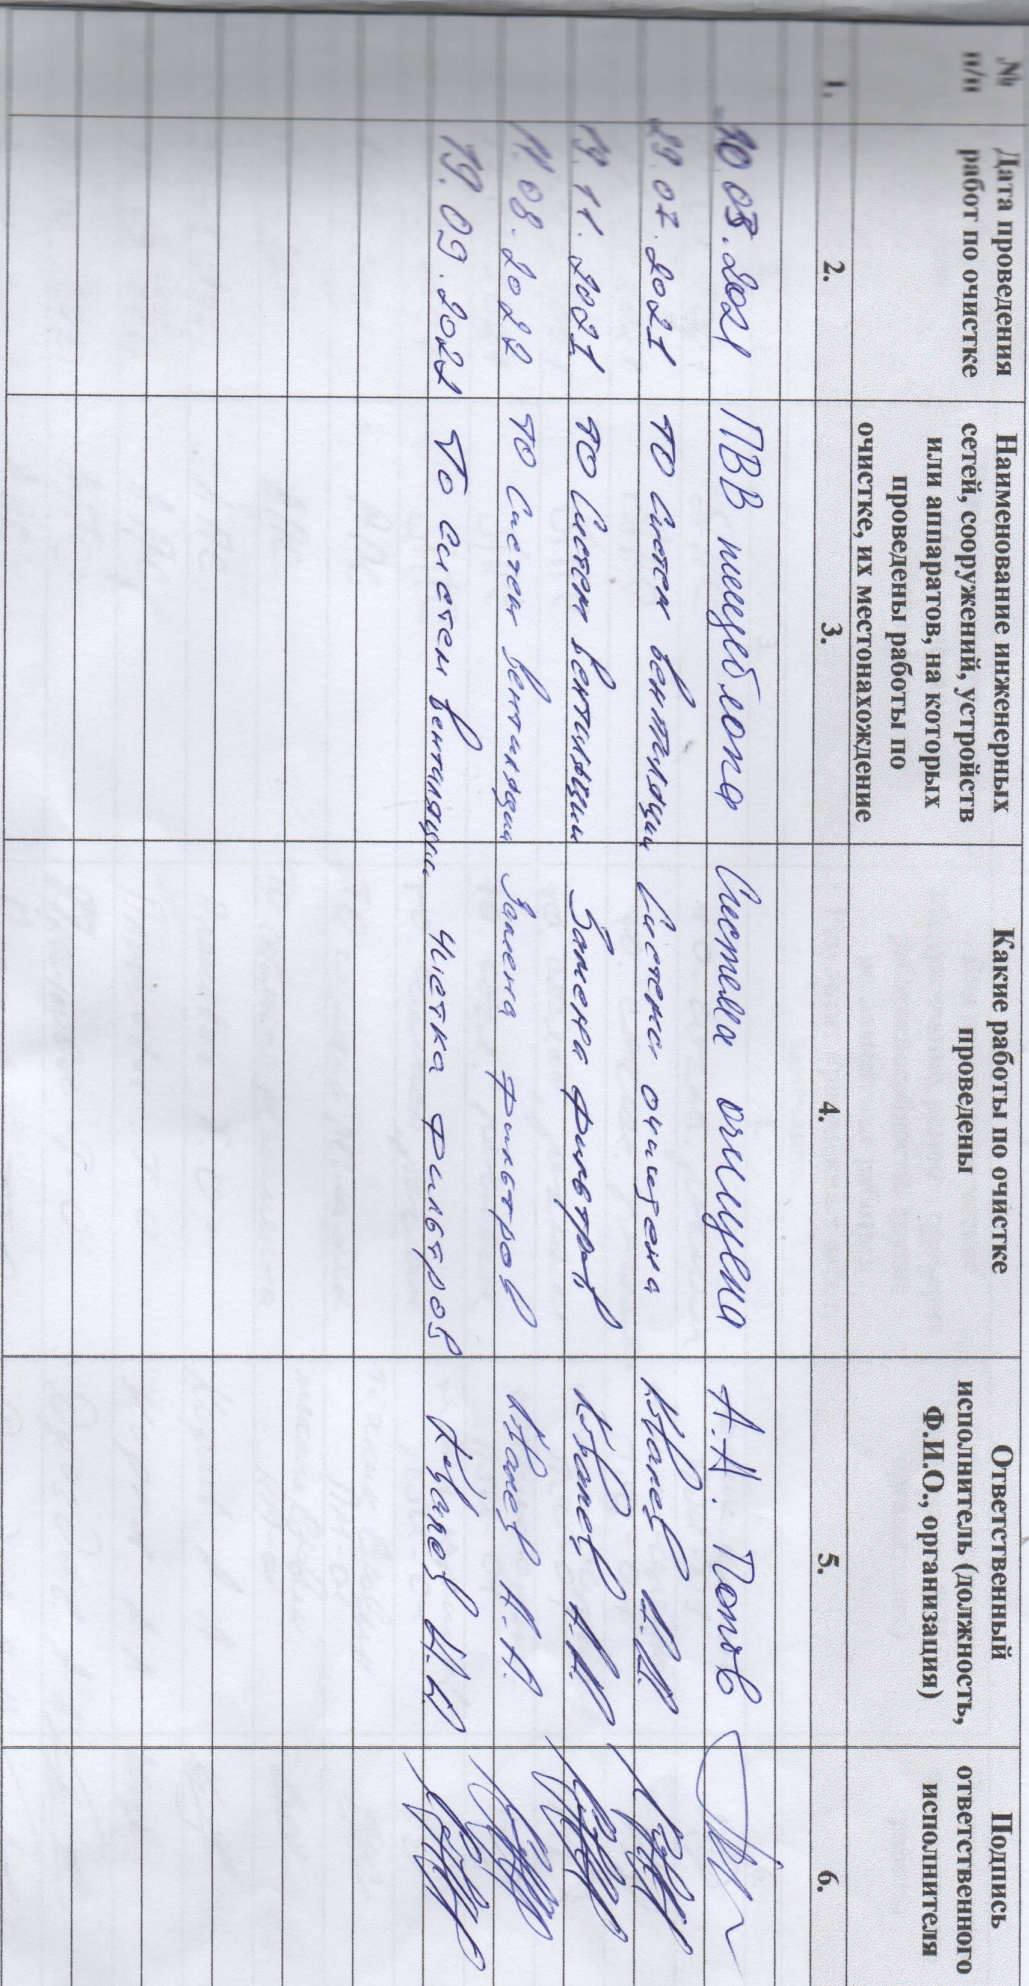 № п/п
Дата проведения работ по очистке
Наименование инженерных сетей, сооружений, устройств или аппаратов, на которых проведены работы по очистке, их местонахождение
Какие работы по очистке проведены
Ответственный исполнитель (должность, Ф.И.О., организация)
Подпись ответственного исполнителя
1. 2. 3. 4. 5. 6.
10.03.2021 ПВВ пищеблока Система очищена А.А. Попов
29.07.2021 ТО систем вентиляции Система очищена А.А.
19.11.2021 ТО Систем вентиляции Замена фильтров А.А.
11.08.2022 ТО Систем вентиляции Замена фильтров А.А.
19.09.2022 ТО систем вентиляции Чистка фильтров А.А.